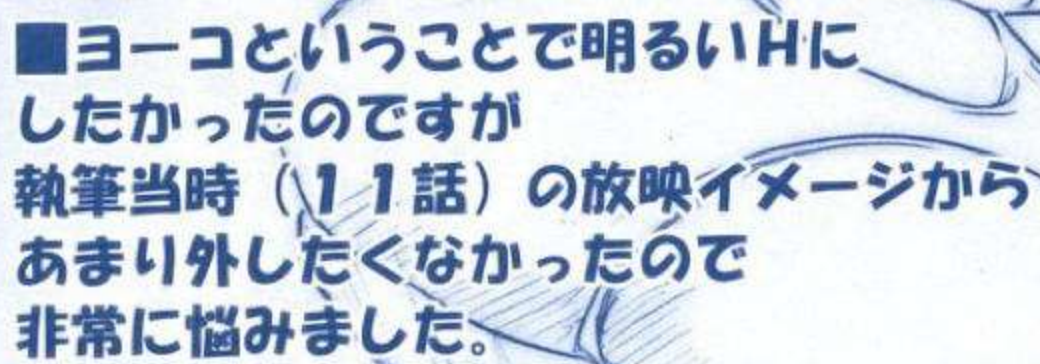 ■ヨーコということで明るいHに
したかったのですが
執筆当時（11話）の放映イメージから
あまり外したくなかったので
非常に悩みました。